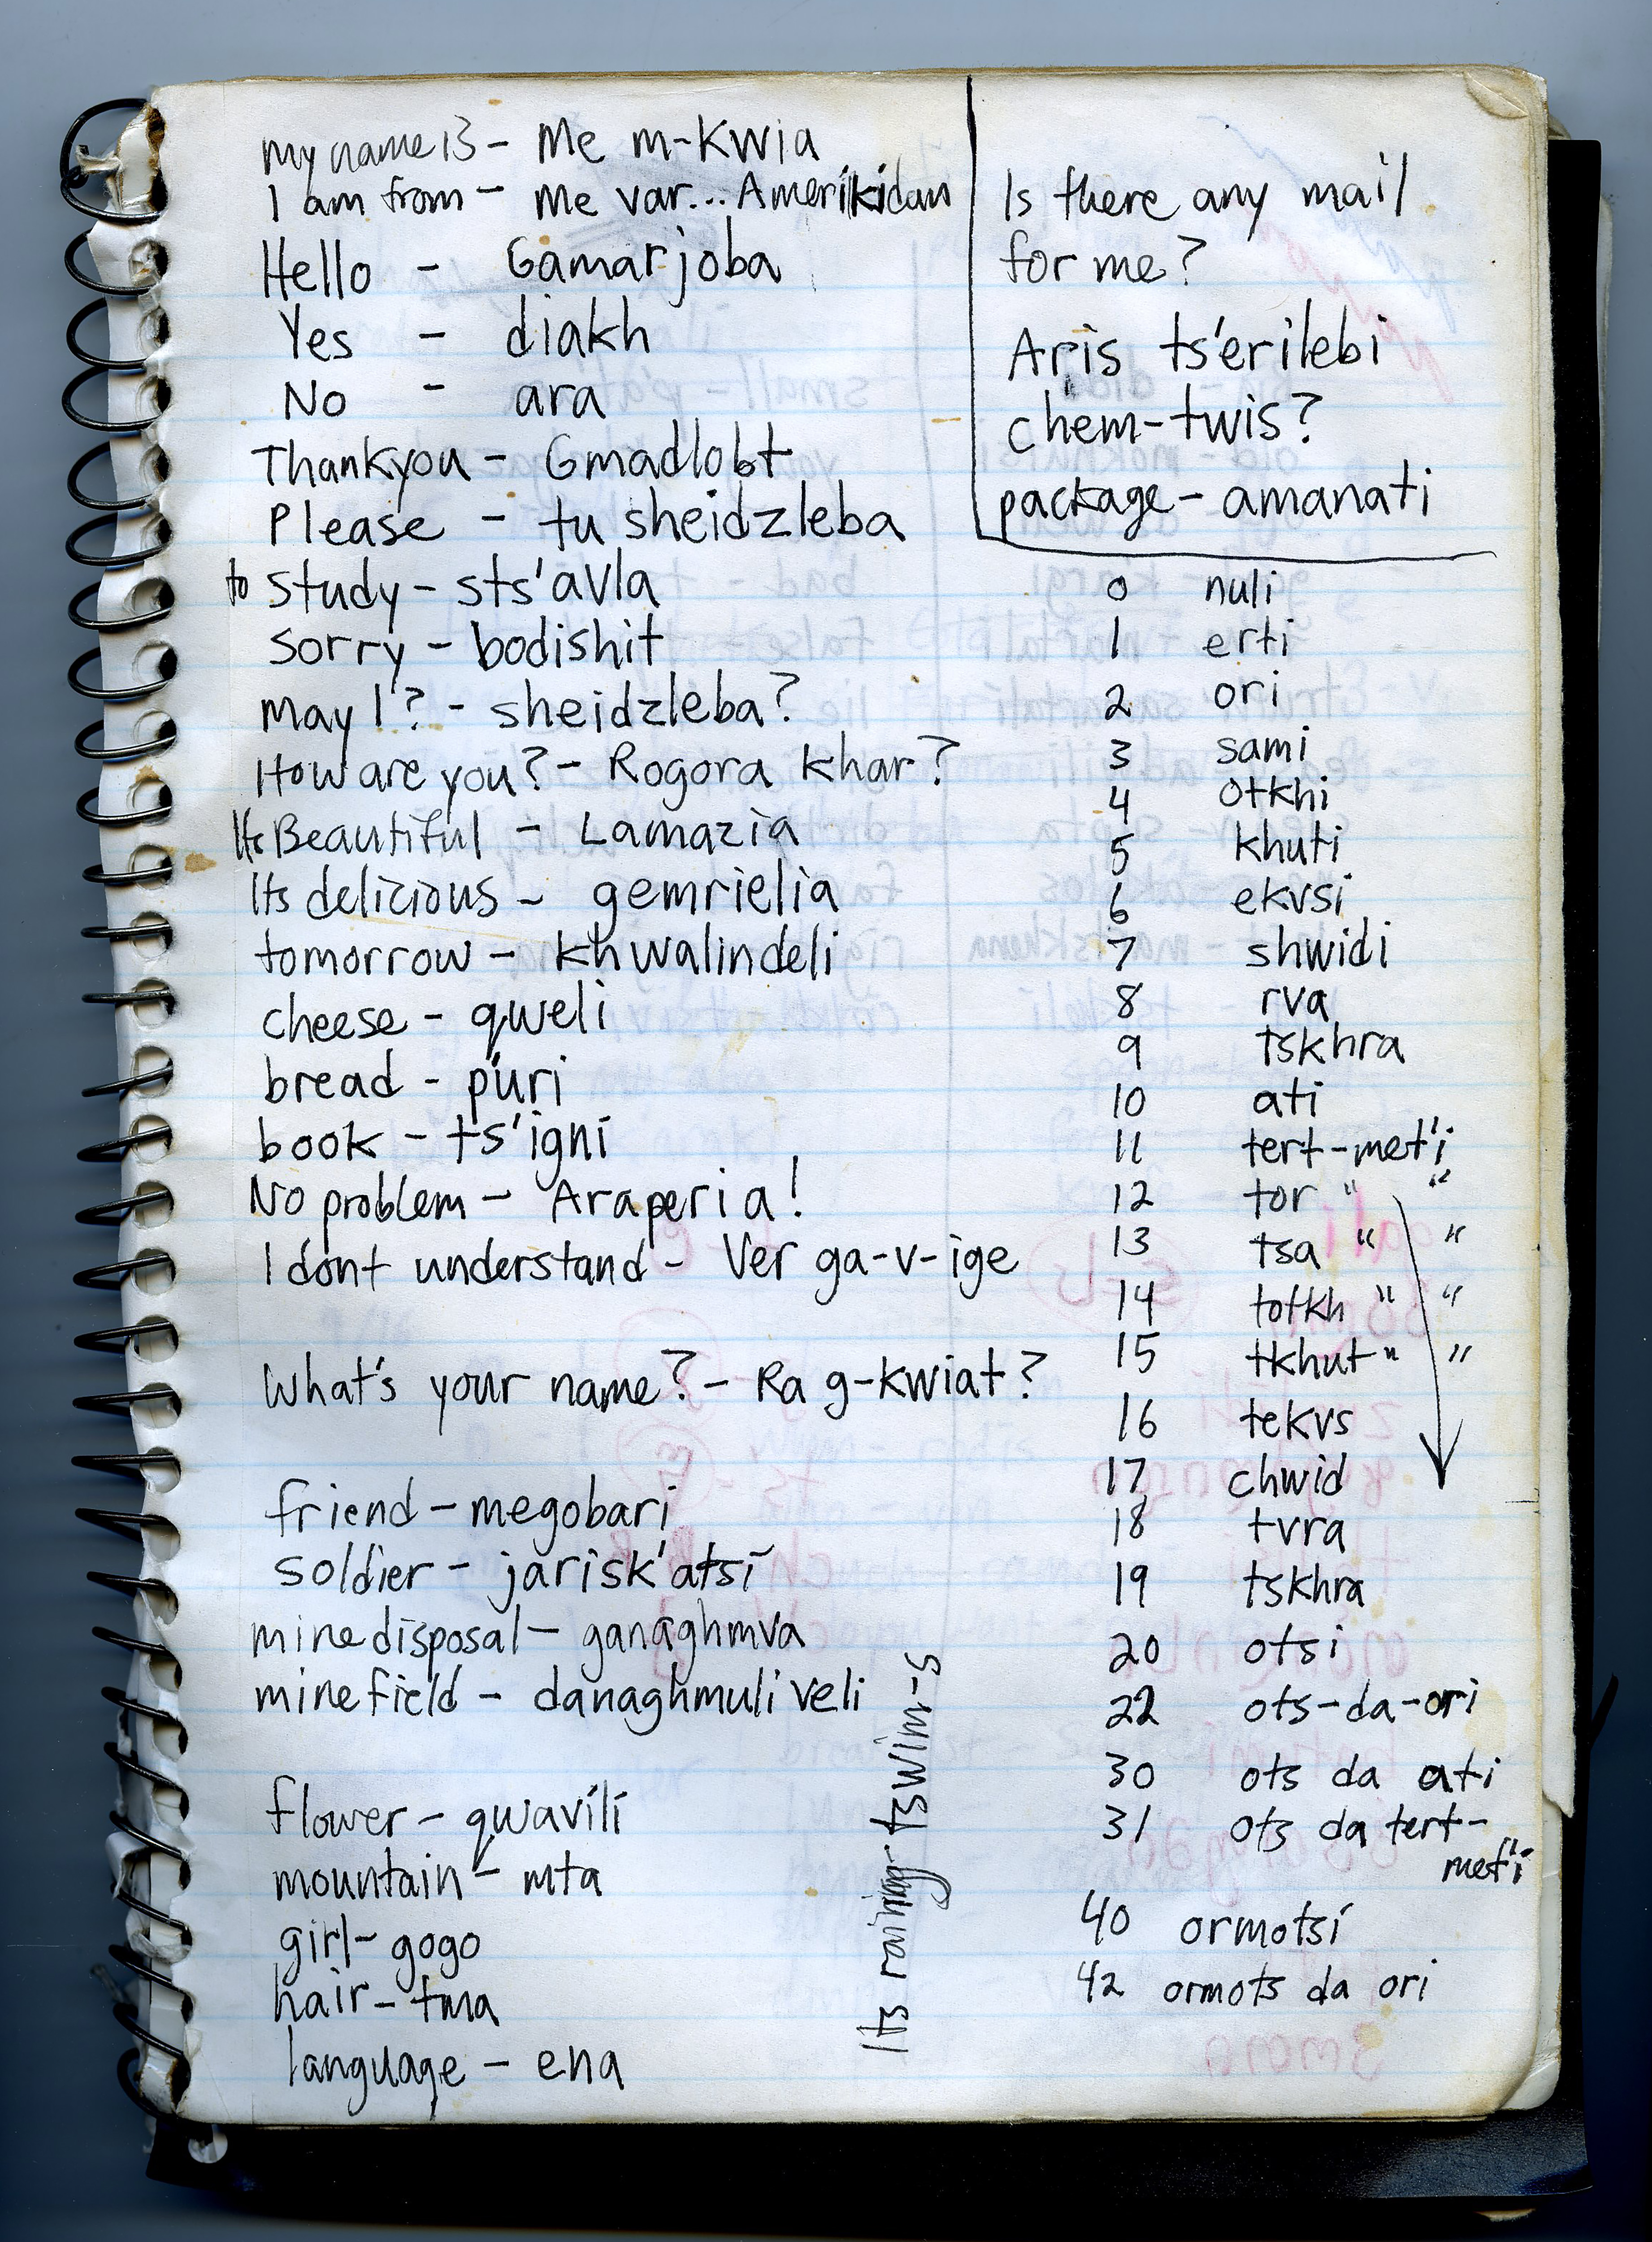 my name is - Me m-kwia
I am from - Me var... Amerikidan
Hello - Gamarjoba
Yes - diakh
No - ara
Thankyou - Gmadlobt
Please - tu sheidzleba
to study - sts'avla
sorry - bodishit
may I? - sheidzleba?
How are you? - Rogora khar?
Its Beautiful - Lamazia
Its delicious - gemrielia
tomorrow - khwalindeli
cheese - qweli
bread - p'uri
book - ts'igni
No problem - Araperia!
I dont understand - Ver ga-v-ige
What's your name? - Ra g-kwiat?
friend - megobari
soldier - jarisk'atsi
mine disposal - ganaghmva
mine field - danaghmuli veli
flower - qwavili
mountain - mta
girl - gogo
hair - tma
language - ena
Its raining - tswim-s
Is there any mail
for me?
Aris ts'erilebi
chem-twis?
package - amanati
0 nuli
1 erti
2 ori
3 sami
4 otkhi
5 khuti
6 ekvsi
7 shwidi
8 rva
9 tskhra
10 ati
11 tert-met'i
12 tor " "
13 tsa " "
14 totkh " "
15 tkhut " "
16 tekvs
17 chwid
18 tvra
19 tskhra
20 otsi
22 ots-da-ori
30 ots da ati
31 ots da tert-
met'i
40 ormotsi
42 ormots da ori